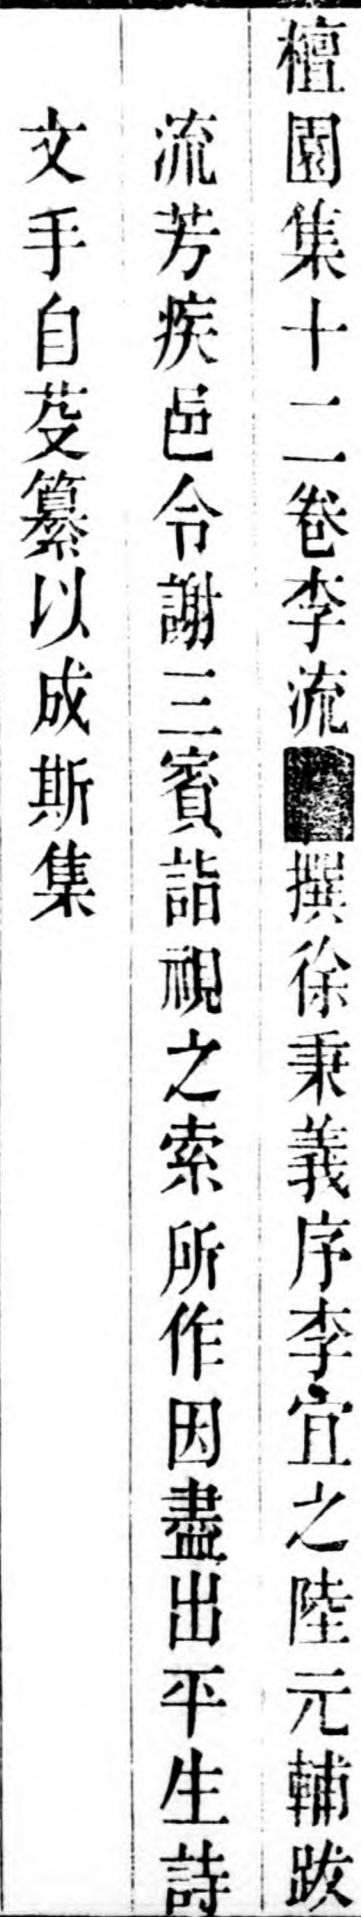 檀園集十二卷李流■撰徐秉義序李宜之陸元輔跋
流芳疾邑令謝三賓詣視之索所作因盡出平生詩
文手自芟纂以成斯集